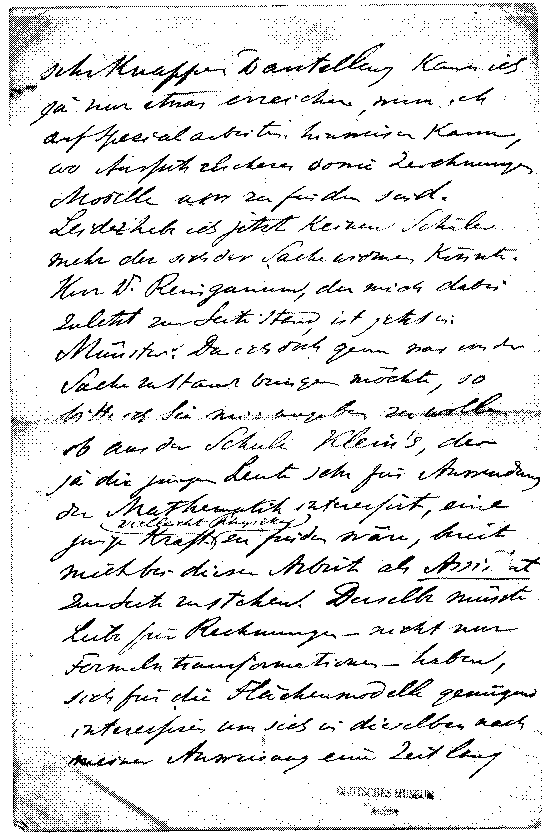 sehr knapper Darstellung kann ich
ja nur etwas erreichen, wenn ich
auf Spezialarbeiten hinweisen kann,
wo Ausführlicheres sowie Zeichnungen
Modelle usw zu finden sind.
Leider habe ich jetzt keinen Schüler
mehr der sich der Sache widmen könnte.
Herr Dr. Reinganum, der mich dabei
zuletzt zur Seite stand, ist jetzt in
Münster. Da ich doch gern was in der
Sache zustande bringen möchte, so
bitte ich Sie mir angeben zu wollen
ob aus der Schule Klein's, der
ja die jungen Leute sehr für Anwendung
der Mathematik interessirt, eine
(vielleicht Physiker)
junge Kraft zu finden wäre, bereit
mich bei dieser Arbeit als Assistent
zur Seite zu stehen. Derselbe müsste
Liebe für Rechnungen – nicht nur
Formeltransformationen – haben,
sich für die Flächenmodelle genügend
interessiren um sich in dieselben nach
meiner Anweisung eine Zeit lang
DEUTSCHES MUSEUM